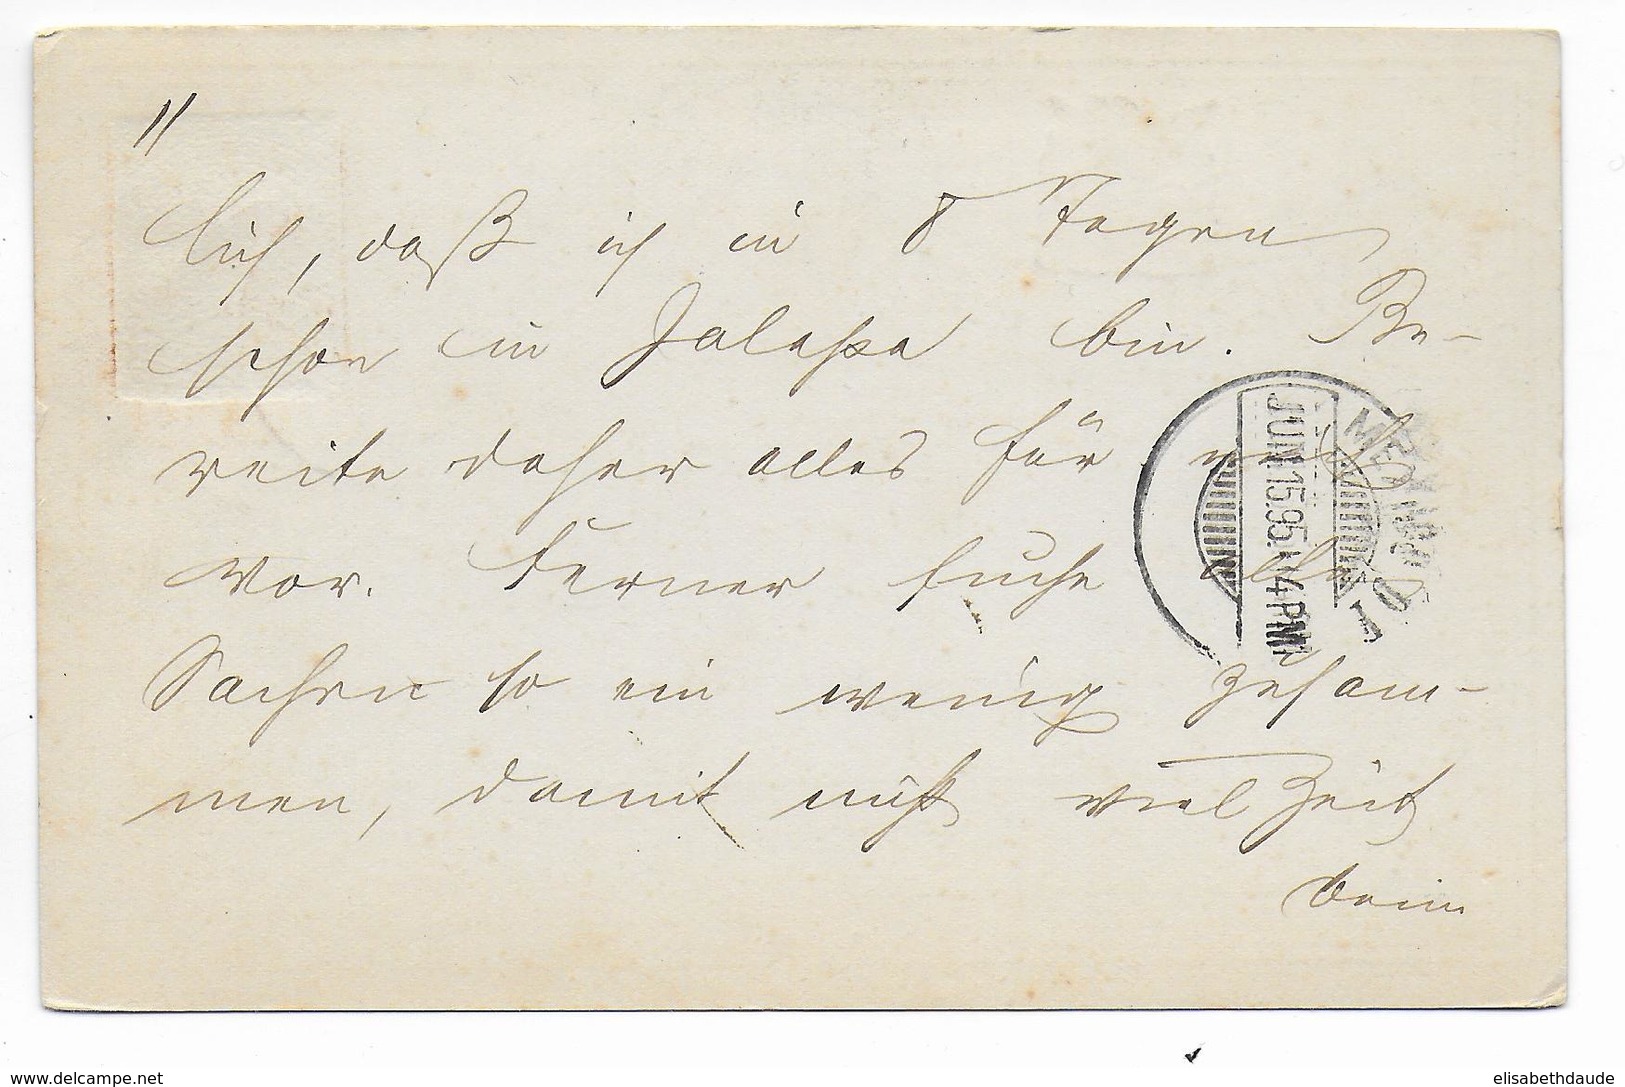 //
lich, daß ich in 8 Tagen
schon in Jalapa bin. Be-
reite daher alles für mich
vor. Ferner suche alle
Sachen so ein wenig zusam-
men, damit nicht viel Zeit
beim
JUN 15.95. 4 PM
www.delcampe.net
elisabethdaude